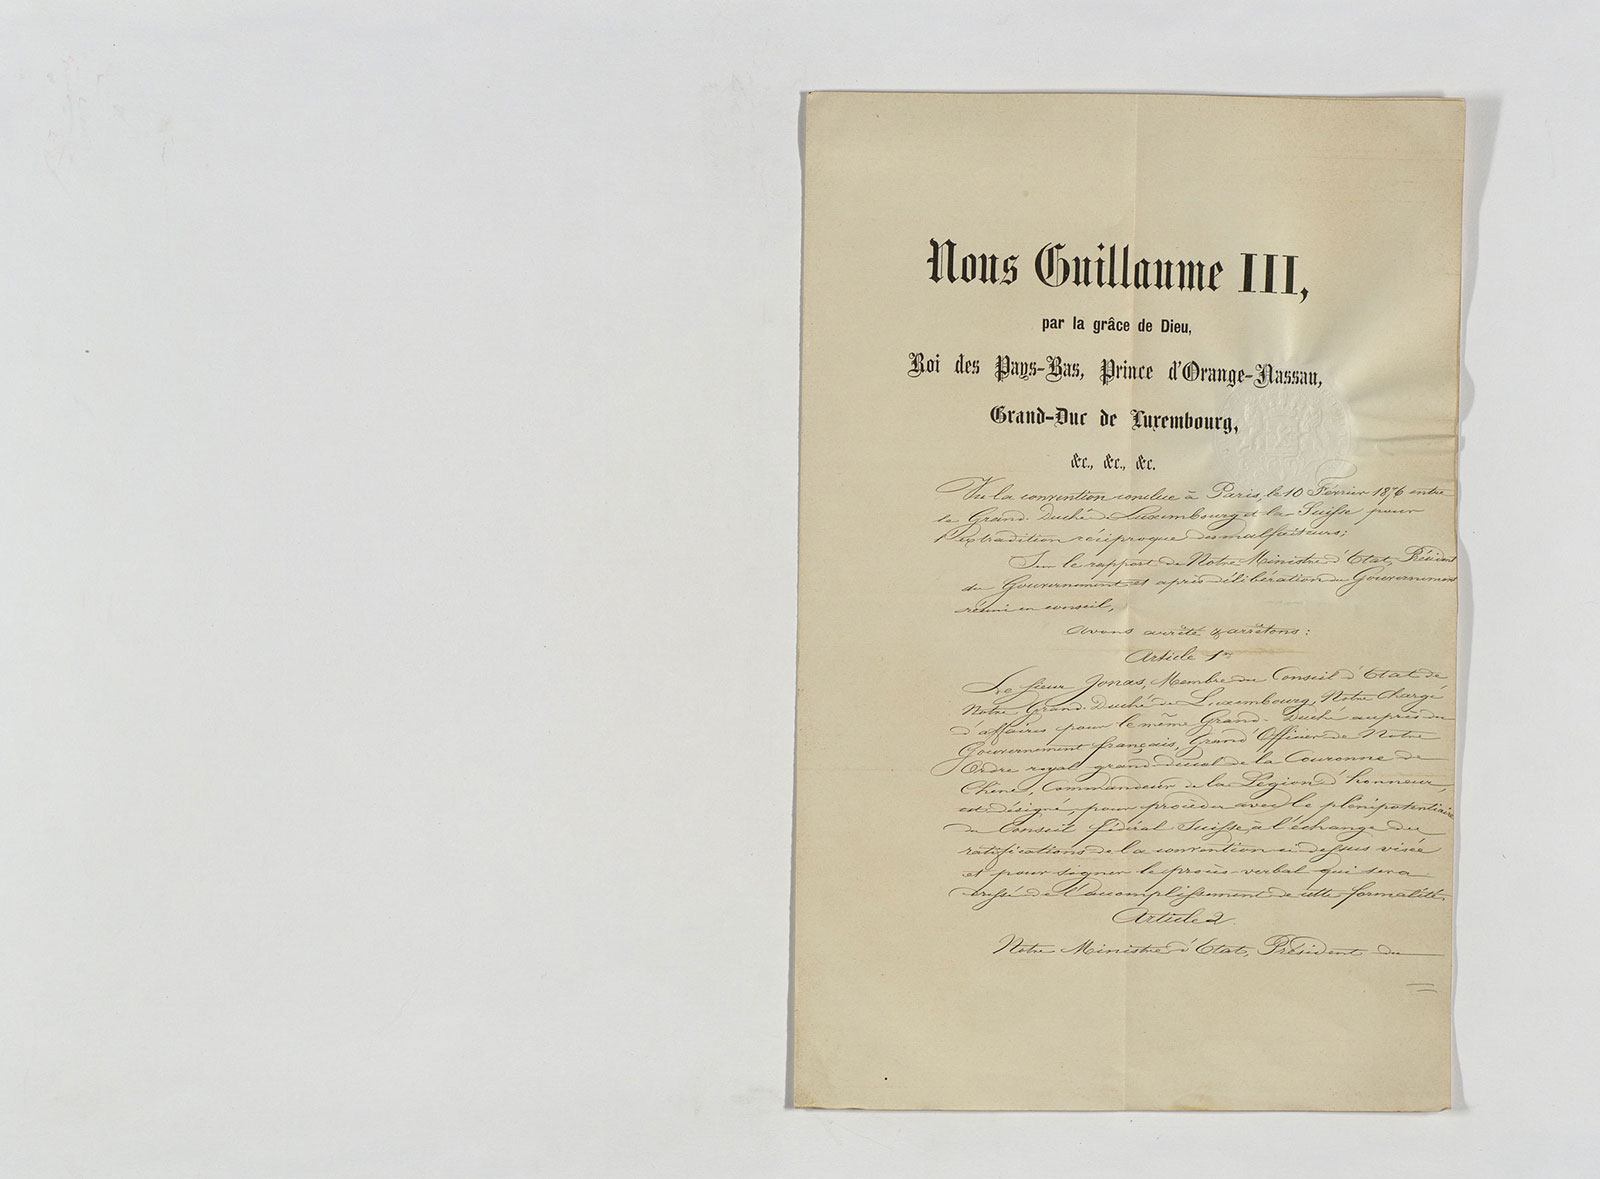 Nous Guillaume III,
par la grâce de Dieu,
Roi des Pays-Bas, Prince d'Orange-Nassau,
Grand-Duc de Luxembourg,
&c., &c., &c.
Vu la convention conclue à Paris, le 10 Février 1876 entre
le Grand-Duché de Luxembourg et la Suisse pour
l'extradition réciproque des malfaiteurs;
Sur le rapport de Notre Ministre d'Etat, Président
du Gouvernement et après délibération du Gouvernement
réuni en conseil,
Avons arrêté & arrêtons:
Article 1er
Le sieur Jonas, Membre du Conseil d'Etat de
Notre Grand-Duché de Luxembourg, Notre Chargé
d'affaires pour le même Grand-Duché auprès du
Gouvernement français, Grand Officier de Notre
Ordre royal grand-ducal de la Couronne de
Chêne, Commandeur de la Légion d'honneur,
est désigné, pour procéder avec le plénipotentiaire
du Conseil fédéral Suisse, à l'échange des
ratifications de la convention ci-dessus visée
et pour signer le procès-verbal qui sera
dressé de l'accomplissement de cette formalité.
Article 2
Notre Ministre d'Etat, Président du